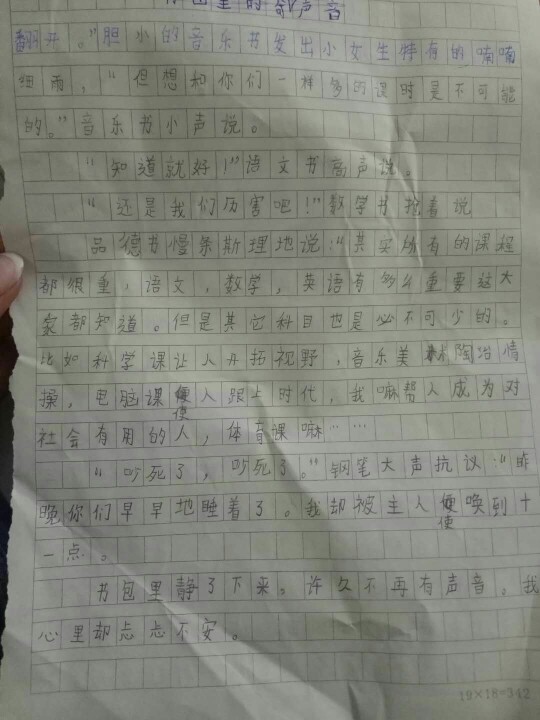 书包里的声音
翻开。”胆小的音乐书发出小女生特有的喃喃
细雨，“但想和你们一样多的课时是不可能
的。”音乐书小声说。
“知道就好！”语文书高声说。
“还是我们历害吧！”数学书抢着说
品德书慢条斯理地说：“其实所有的课程
都很重，语文，数学，英语有多么重要这大
家都知道。但是其它科目也是必不可少的。
比如科学课让人开拓视野，音乐美术陶冶情
操，电脑课使人跟上时代，我嘛帮人成为对
社会有用的人，体育课嘛……
“吵死了，吵死了。”钢笔大声抗议：“昨
晚你们早早地睡着了。我却被主人使唤到十
一点。
书包里静了下来。许久不再有声音，我
心里却忐忐不安。
19×18=342